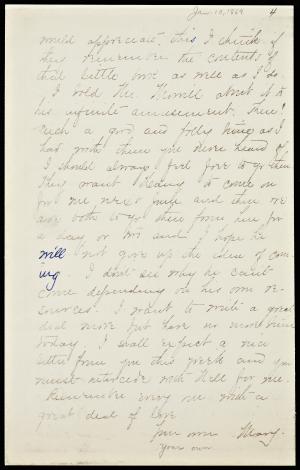 Jan. 10, 1869
4
would appreciate this I think if
they remember the contents of
that little one as well as I do.
I told Mr. Howell about it to
his infinite amusement. There!
such a good and jolly time as I
had with them you never heard of
I should always feel free to go there
They want Harry to come on
for me next June and then we
are both to go there from here for
a day or two and I hope he
will not give up the idea of com-
ing I don't see why he can't
come depending on his own re-
sources. I want to write a great
deal more but have no more time
today. I shall expect a nice
letter from you this week and you
must intercede with Nell for me.
Remember every one with a
great deal of love
Your own Mary.
Your own